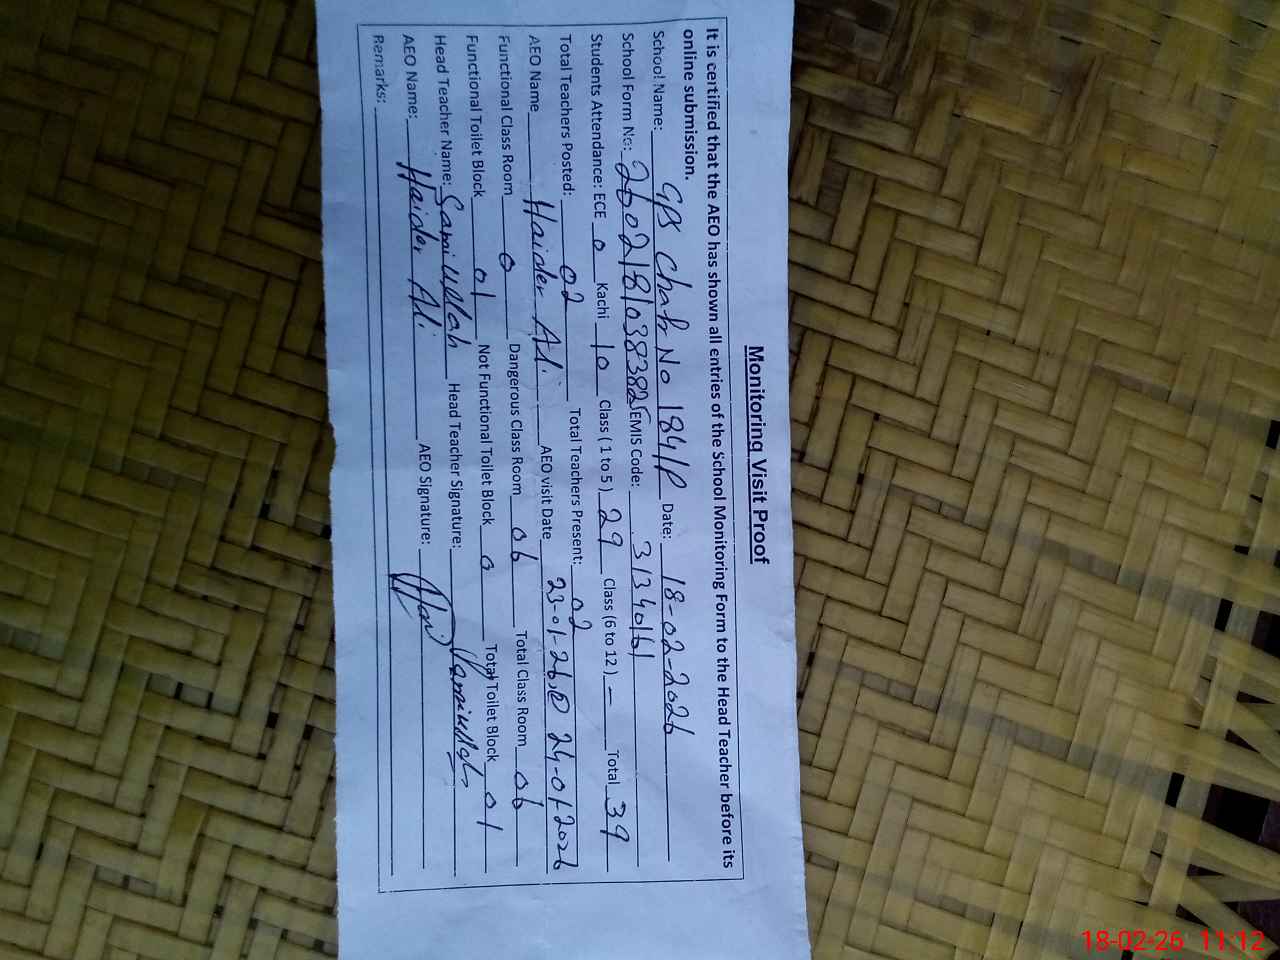 Monitoring Visit Proof
It is certified that the AEO has shown all entries of the School Monitoring Form to the Head Teacher before its
online submission.
School Name: GPS Chah No 184/P Date: 18-02-2026
School Form No: 26021810383825 EMIS Code: 31340161
Students Attendance: ECE 0 Kachi 10 Class ( 1 to 5 ) 29 Class (6 to 12 ) – Total 39
Total Teachers Posted: 02 Total Teachers Present: 02
AEO Name Haider Ali AEO visit Date 23-01-26, @ 24-01-2026
Functional Class Room 0 Dangerous Class Room 06 Total Class Room 06
Functional Toilet Block 01 Not Functional Toilet Block 0 Total Toilet Block 01
Head Teacher Name: Samiullah Head Teacher Signature: Samiullah
AEO Name: Haider Ali AEO Signature:
Remarks:
18-02-26 11:12